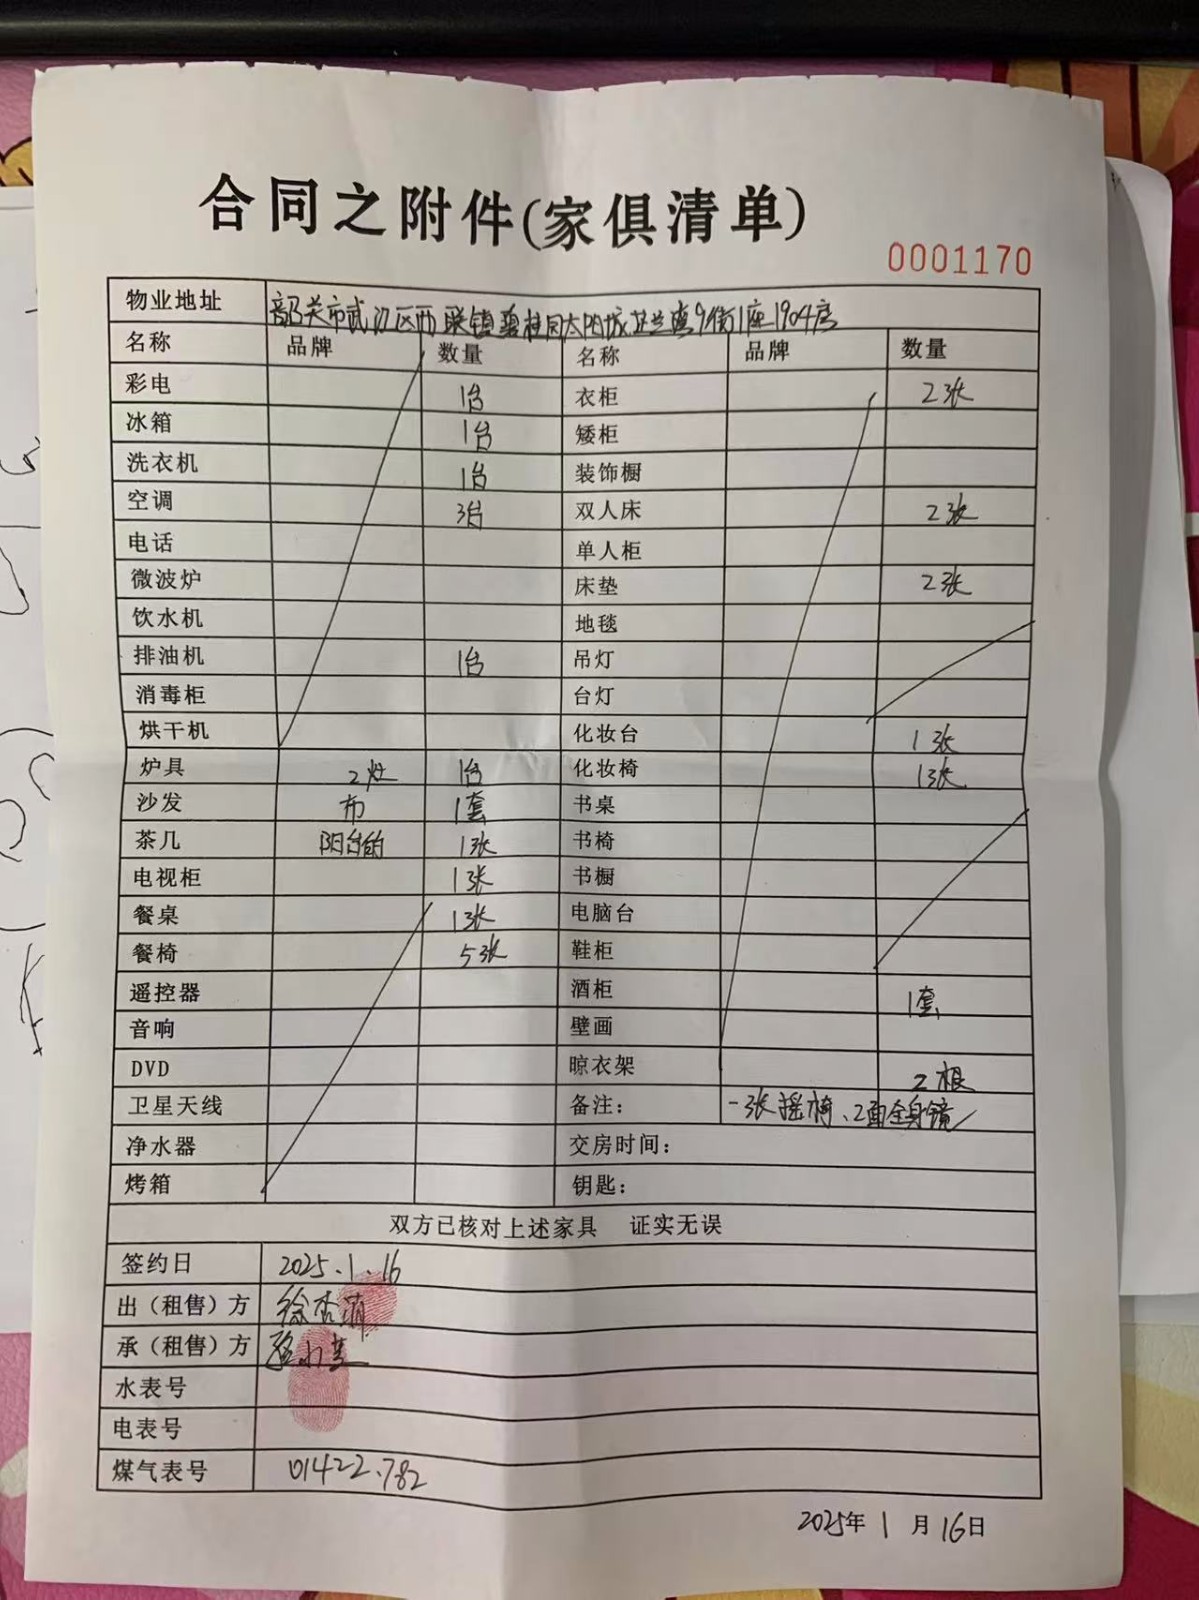 合同之附件(家俱清单)
0001170
物业地址 韶关市武江区西联镇碧桂园太阳城芷兰湾9街1座1904房
名称 品牌 数量 名称 品牌 数量
彩电 1台 衣柜 2张
冰箱 1台 矮柜
洗衣机 1台 装饰橱
空调 3台 双人床 2张
电话 单人柜
微波炉 床垫 2张
饮水机 地毯
排油机 1台 吊灯
消毒柜 台灯
烘干机 化妆台 1张
炉具 2灶 1台 化妆椅 1张
沙发 布 1套 书桌
茶几 阳台的 1张 书椅
电视柜 1张 书橱
餐桌 1张 电脑台
餐椅 5张 鞋柜
遥控器 酒柜 1套
音响 壁画
DVD 晾衣架 2根
卫星天线 备注： 一张摇椅、2面全身镜
净水器 交房时间：
烤箱 钥匙：
双方已核对上述家具 证实无误
签约日 2025.1.16
出（租售）方 徐杏
承（租售）方
水表号
电表号
煤气表号 01422.782
2025年1月16日